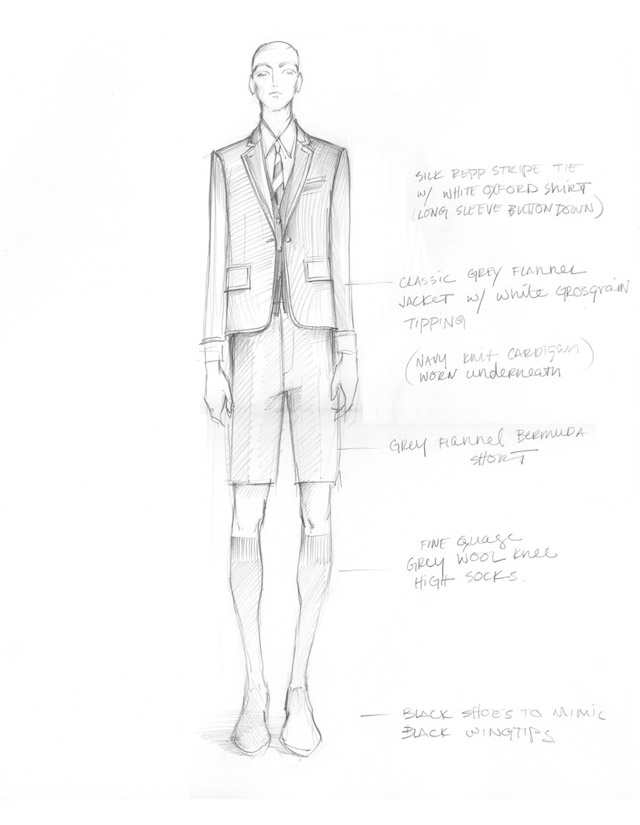 SILK REPP STRIPE TIE
W/ WHITE OXFORD SHIRT
(LONG SLEEVE BUTTON DOWN)
CLASSIC GREY FLANNEL
JACKET W/ WHITE GROSGRAIN
TIPPING
(NAVY KNIT CARDIGAN)
WORN underneath
GREY FLANNEL BERMUDA
SHORT
FINE GUAGE
GREY WOOL KNEE
HIGH SOCKS.
BLACK SHOES TO MIMIC
BLACK WINGTIPS